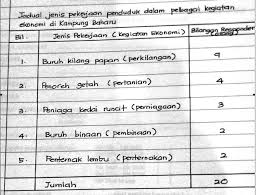 Jadual jenis pekerjaan penduduk dalam pelbagai kegiatan
ekonomi di Kampung Baharu
Bil. Jenis Pekerjaan ( kegiatan Ekonomi ) Bilangan Responden
1. Buruh kilang papan ( perkilangan ) 9
2. Penoreh getah ( pertanian ) 4
3. Peniaga kedai runcit ( perniagaan ) 3
4. Buruh binaan ( pembinaan ) 2
5. Penternak lembu ( penternakan ) 2
Jumlah 20